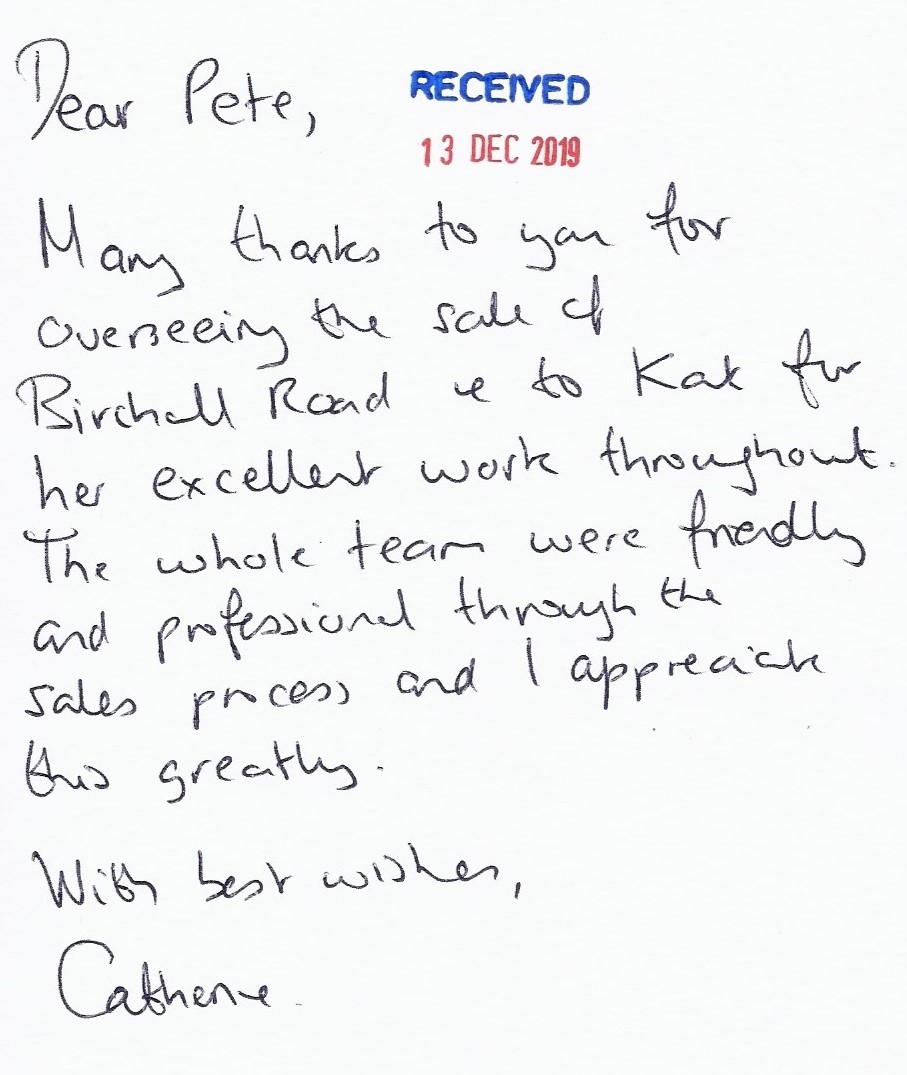 Dear Pete,
RECEIVED
13 DEC 2019
Many thanks to you for
overseeing the sale of
Birchall Road & to Kat for
her excellent work throughout.
The whole team were friendly
and professional through the
sales process and I appreciate
this greatly.
With best wishes,
Catherine.